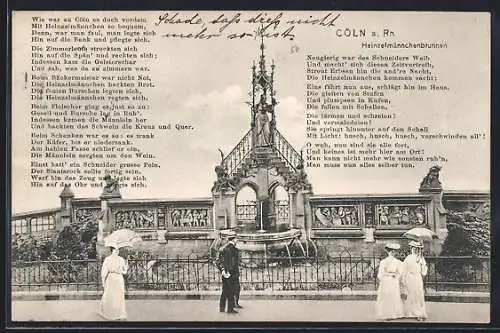 Schade, daß dieß nicht
mehr so ist!
CÖLN a. Rh
Heinzelmännchenbrunnen
Wie war zu Cöln es doch vordem
Mit Heinzelmännchen so bequem,
Denn, war man faul, man legte sich
Hin auf die Bank und pflegte sich.
Die Zimmerleute streckten sich
Hin auf die Spän' und reckten sich;
Indessen kam die Geisterschar
Und sah, was da zu zimmern war.
Beim Bäckermeister war nicht Not,
Die Heinzelmännchen backten Brot.
Die faulen Burschen legten sich,
Die Heinzelmännchen regten sich.
Beim Fleischer ging es just so zu:
Gesell und Bursche lag in Ruh',
Indessen kamen die Männlein her
Und hackten das Schwein die Kreuz und Quer.
Beim Schenken war es so: es trank
Der Küfer, bis er niedersank.
Am hohlen Fasse schlief er ein,
Die Männlein sorgten um den Wein.
Einst hatt' ein Schneider grosse Pein,
Der Staatsrock sollte fertig sein.
Warf hin das Zeug und legte sich
Hin auf das Ohr und pflegte sich.
Neugierig war des Schneiders Weib
Und macht' sich diesen Zeitvertreib,
Streut Erbsen hin die and're Nacht,
Die Heinzelmännchen kommen sacht;
Eins fährt nun aus, schlägt hin im Haus,
Die gleiten von Stufen
Und plumpsen in Kufen,
Die fallen mit Schallen,
Die lärmen und schreien!
Und vermaledeien!
Sie springt hinunter auf den Schall
Mit Licht: husch, husch, husch, verschwinden all'!
O weh, nun sind sie alle fort,
Und keines ist mehr hier am Ort!
Man kann nicht mehr wie sonsten ruh'n,
Man muss nun alles selber tun.